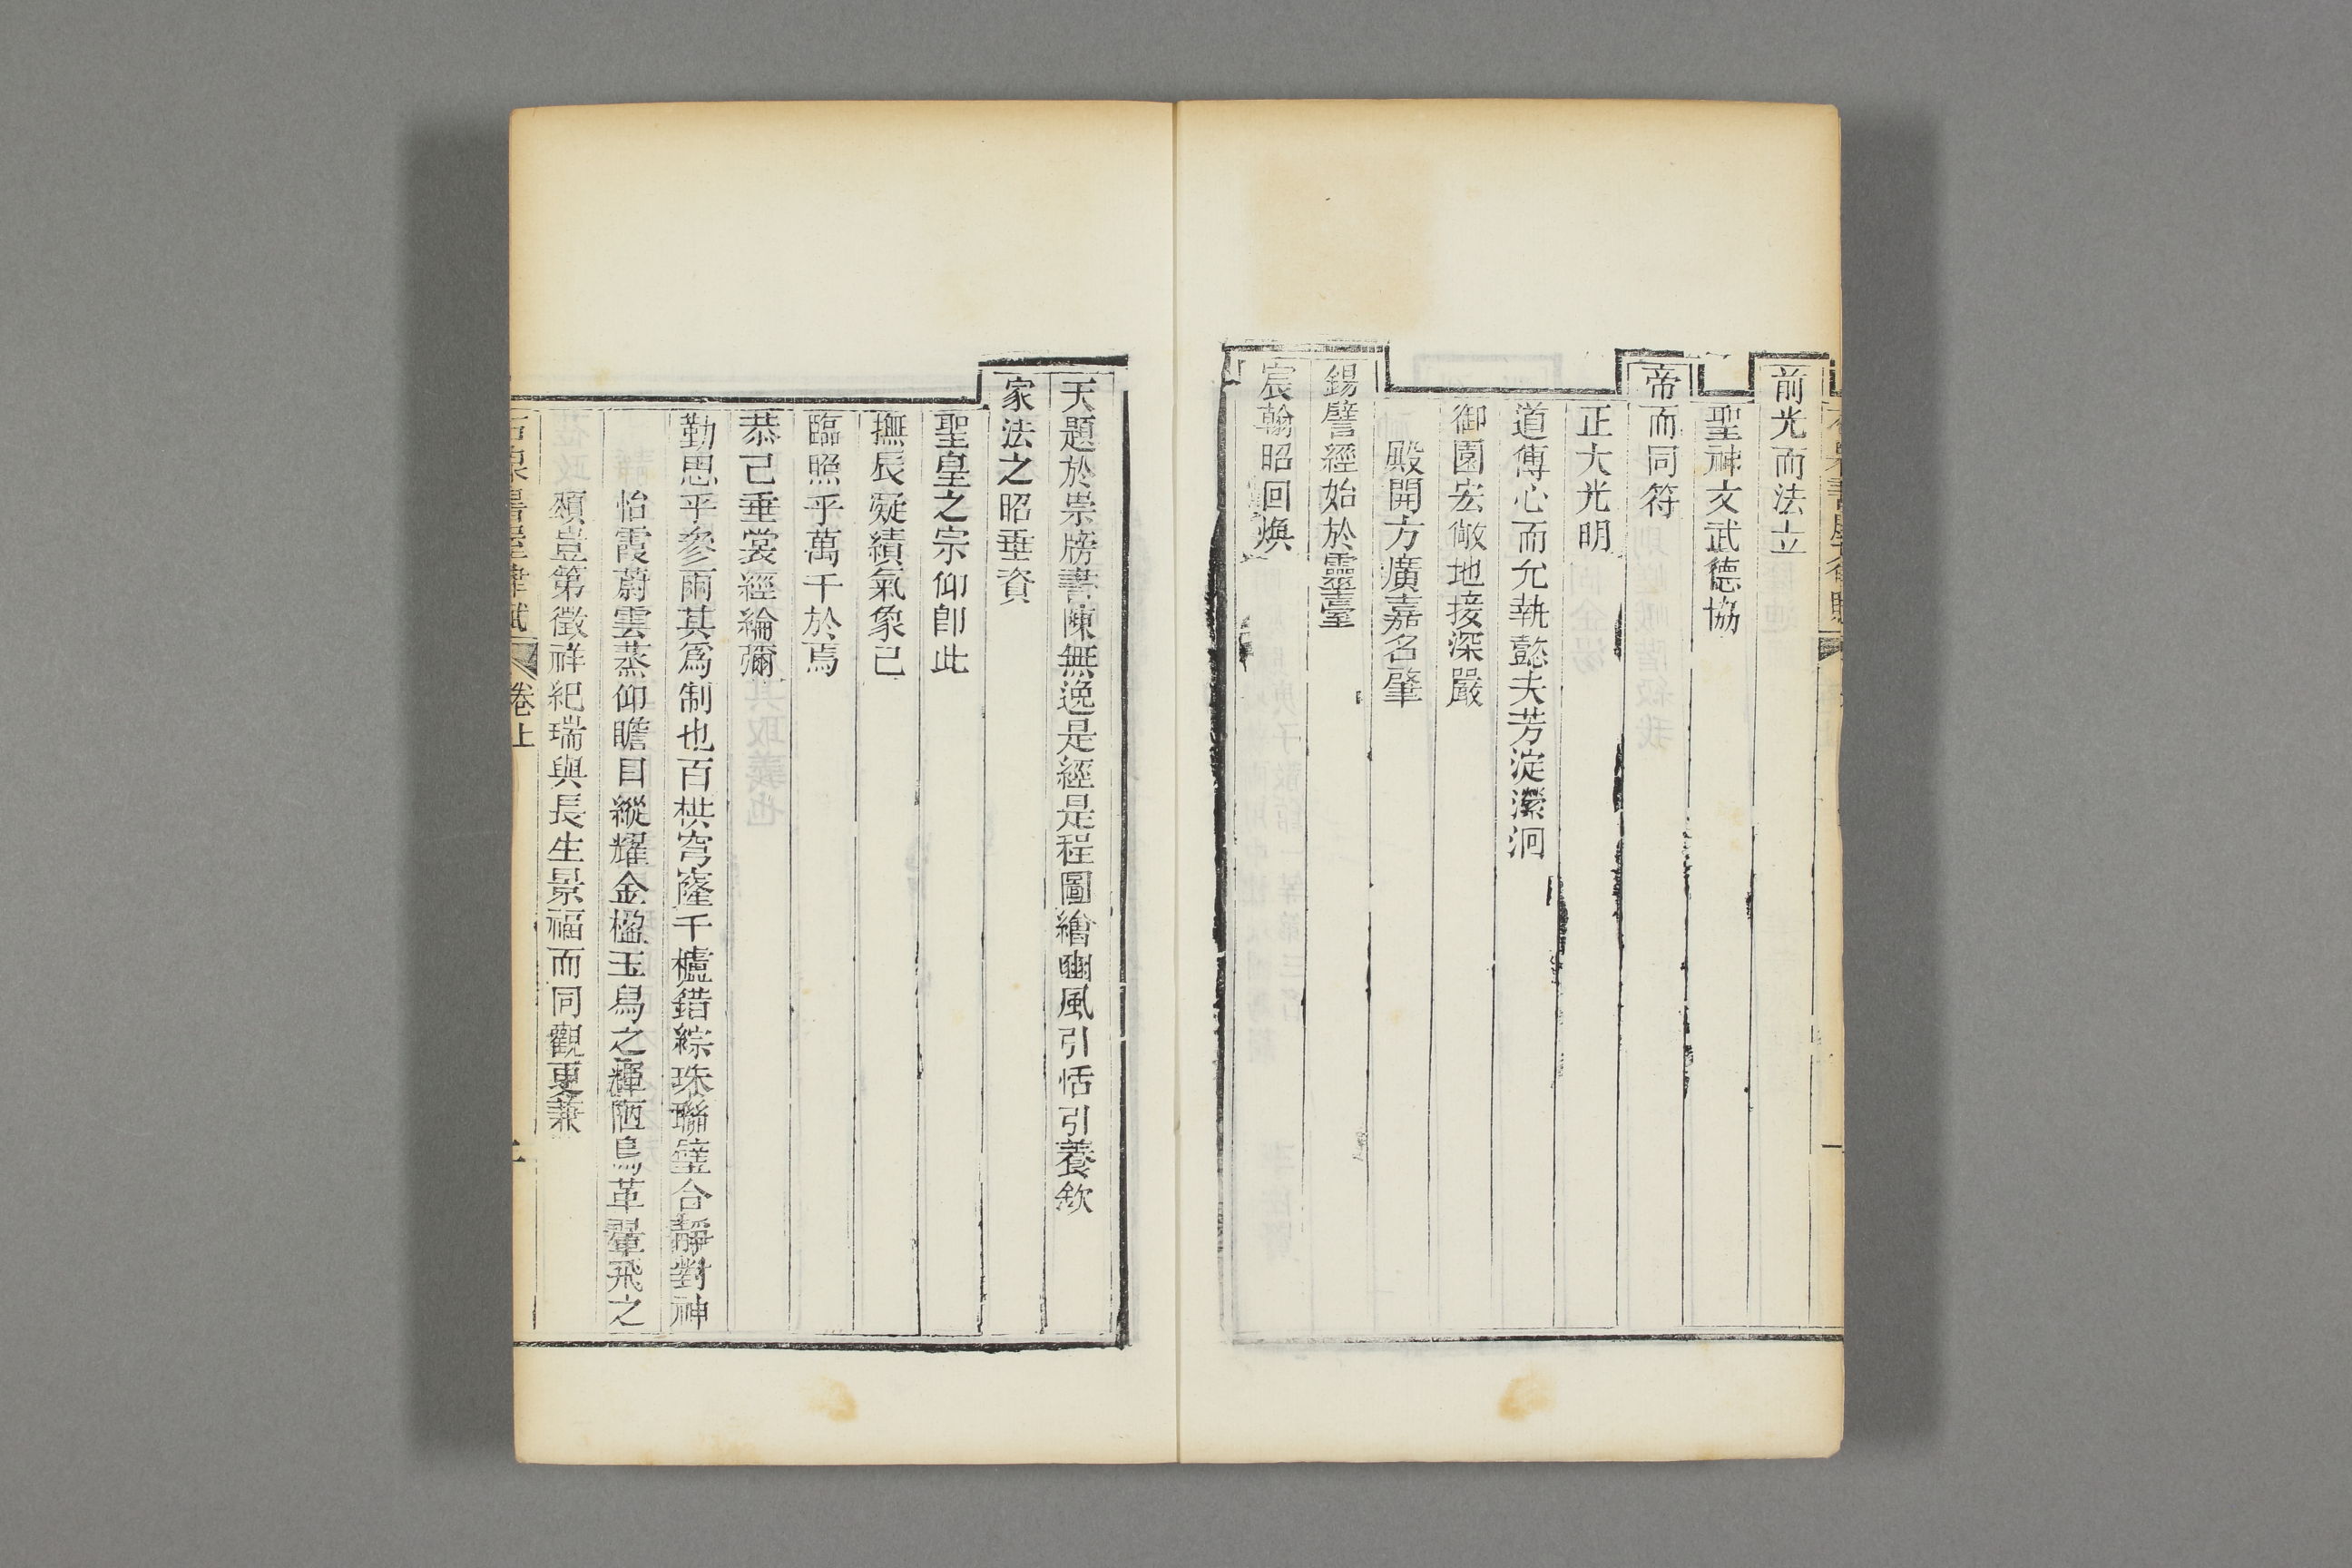 前光而法立
聖神文武德協
帝而同符
正大光明
道傳心而允執懿夫芳淀瀠洄
御園宏敞地接深嚴
殿開方廣嘉名肇
錫譬經始於靈臺
宸翰昭回煥
天題於崇牓書陳無逸是經是程圖繪豳風引恬引養欽
家法之昭垂資
聖皇之宗仰卽此
撫辰凝績氣象已
臨照乎萬千於焉
恭己垂裳經綸彌
勤思乎參爾其爲制也百栱穹窿千櫨錯綜珠聯璧合靜對神
怡霞蔚雲蒸仰瞻目縱耀金楹玉舃之輝陋鳥革翬飛之
頌豈第徵祥紀瑞與長生景福而同觀更兼
卷上